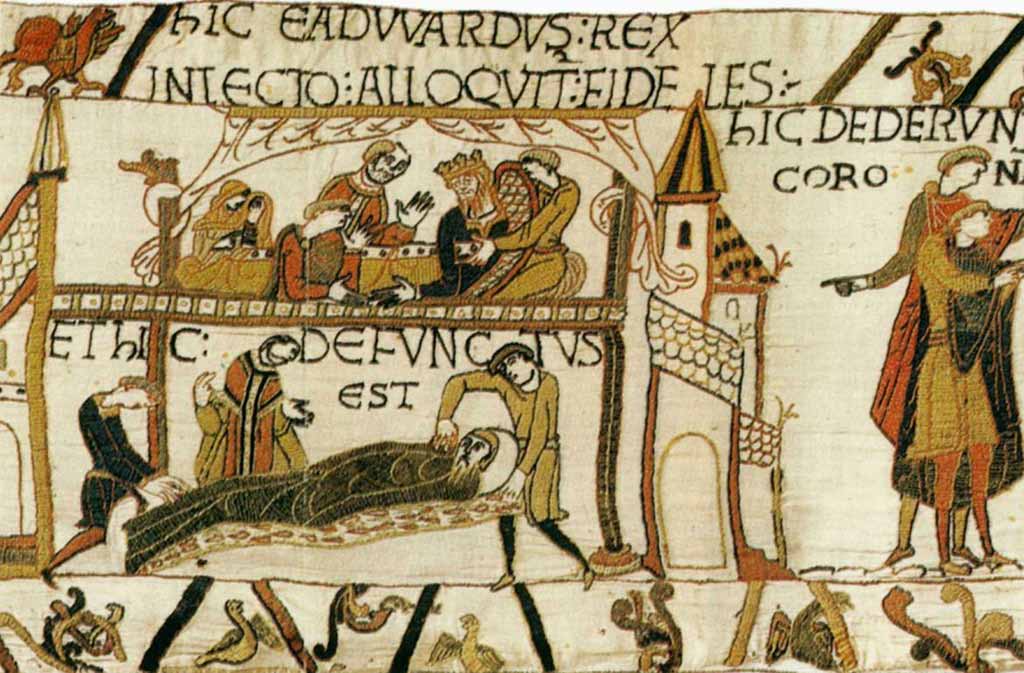 hIC EADVVARDVS:REX
INLECTO:ALLOQVIT:FIDELES:-
hIC DEDERVN
CORO NA
ET hIC: DEFVNCTVS
EST